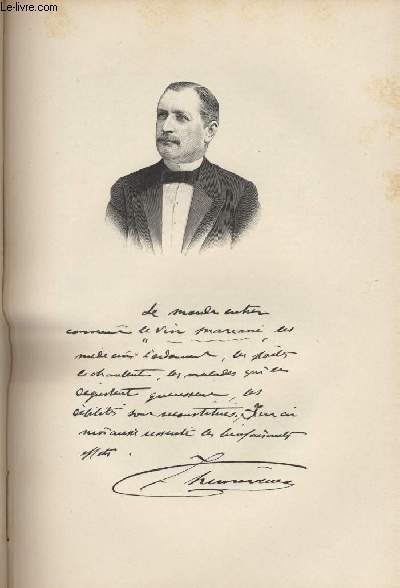 Le-Livre.com
Le monde entier
connait le Vin Mariani, les
médecins l'ordonnent, les poètes
le chantent, les malades qui le
dégustent guérissent, les
débilités sont reconstitués, J'en ai
moi aussi ressenti les bienfaisants
effets.